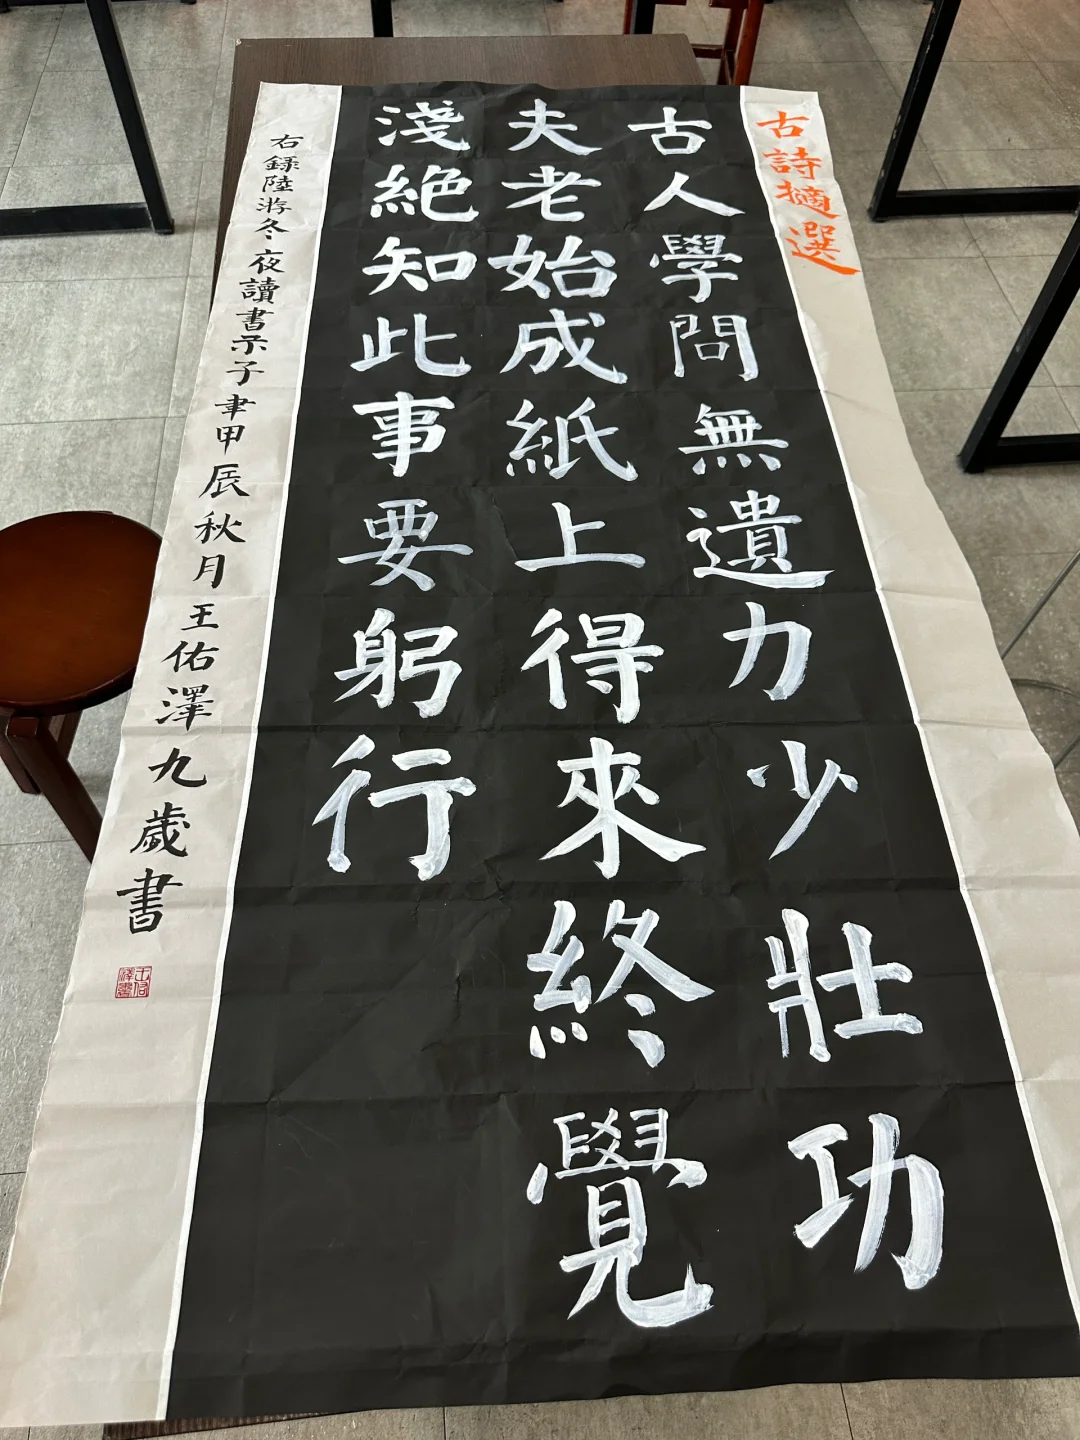 古詩摘選
古人學問無遺力少壯功
夫老始成紙上得來終覺
淺絕知此事要躬行
右錄陸游冬夜讀書示子聿甲辰秋月王佑澤九歲書